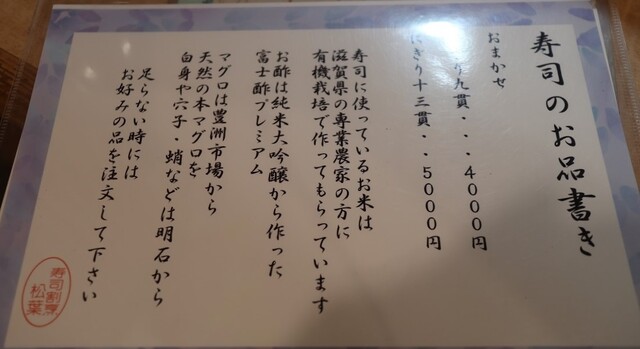 寿司のお品書き
おまかせ
り九貫・・・4000円
にぎり十三貫・・5000円
寿司に使っているお米は
滋賀県の専業農家の方に
有機栽培で作ってもらっています
お酢は純米大吟醸から作った
富士酢プレミアム
マグロは豊洲市場から
天然の本マグロを
白身や穴子・蛸などは明石から
足らない時には
お好みの品を注文して下さい
寿司割烹
松葉